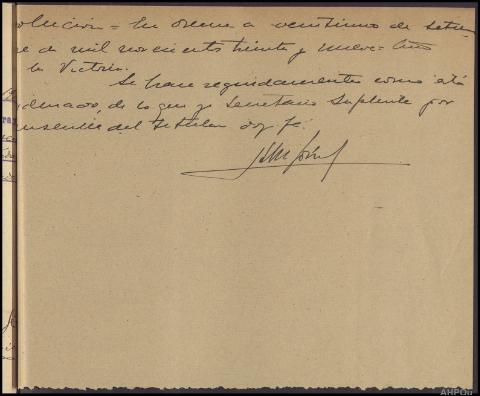 olución = En Orense a veintiuno de setiem
re de mil novecientos treinta y nueve = Año
la Victoria.
Se hace seguidamente como está
denado, de lo que yo Secretario Suplente por
ausencia del titular doy fé.
AHPOu